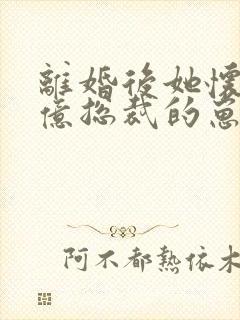 離婚後她懷
億總裁的崽
阿不都熱依木